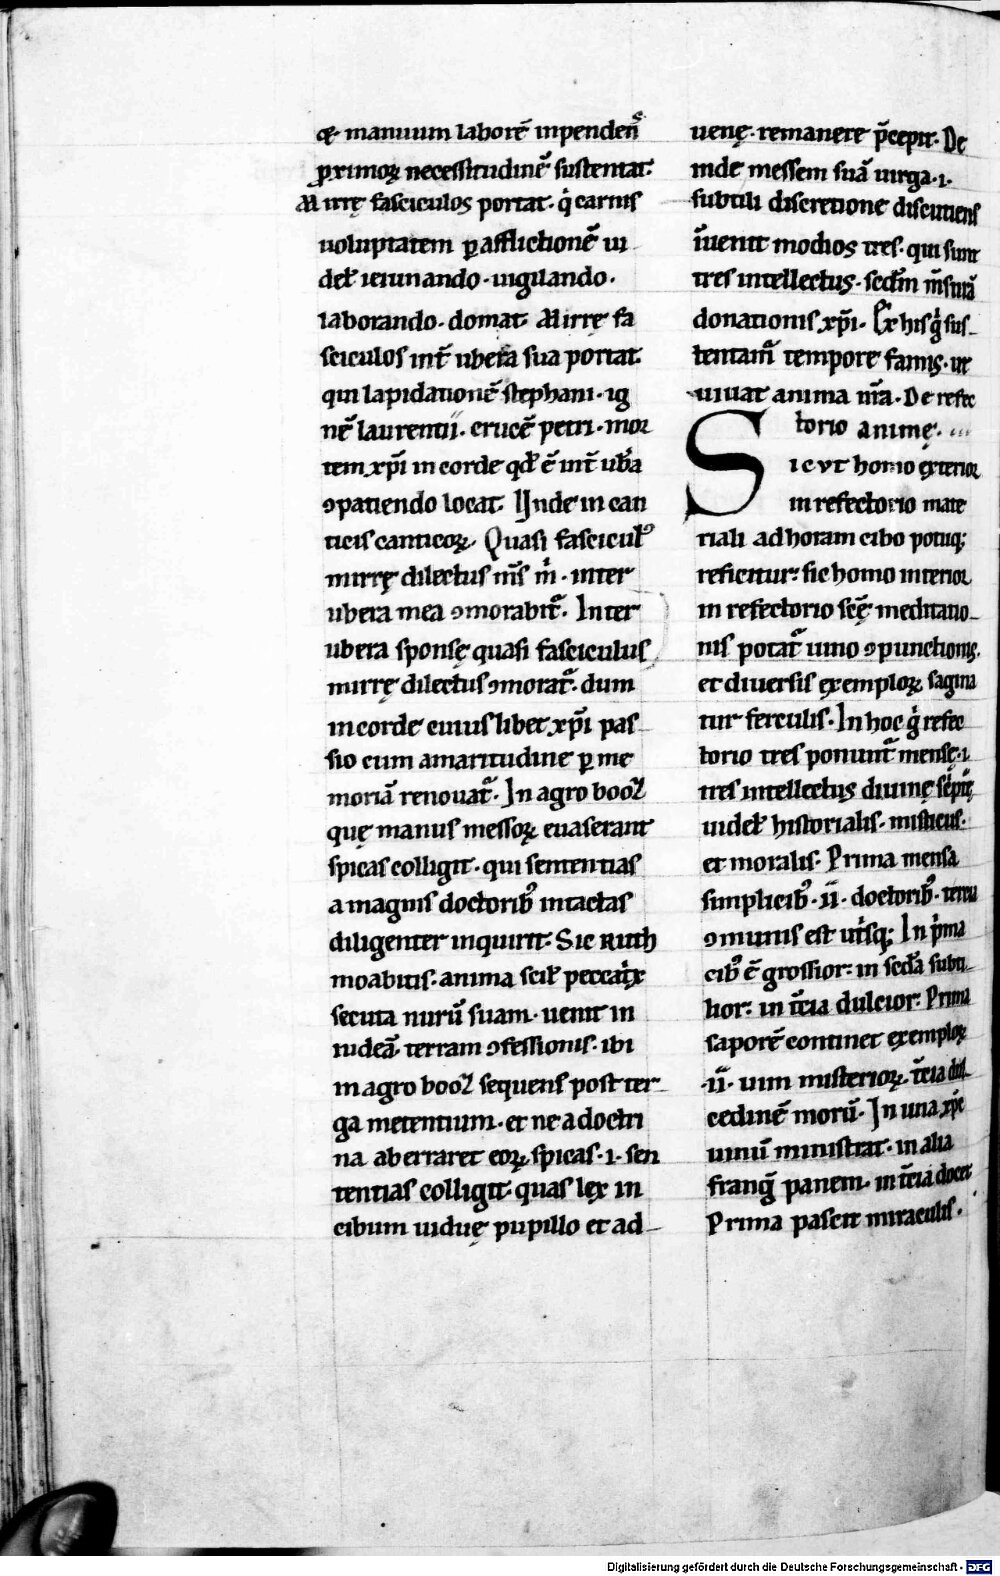 ę· manuum laborē inpendenſ
ꝓximoꝝ neceſſitudinē ſuſtentat.
Mirrę faſciculos portat· q̇ carniſ
uoluptatem ꝑ afflictionē ui
del̃ ieiunando· uigilando·
laborando· domat. Mirrę fa
ſciculos int̃ ubera ſua portat.
qui lapidationē ſtephani· ig
nē laurentii· crucē petri· mor
tem xp̄i in corde qđ ē int̃ ub̃a
ꝯpatiendo locat. Unde in can
ticis canticoꝝ· Quaſi faſcicul᷒
mirrę dilectus m̄s ṁ· inter
ubera mea ꝯmorabit᷑. Inter
ubera ſponſę quaſi faſciculus
mirrę dilectus ꝯmorat᷑. dum
in corde cuius libet xp̄i paſ
ſio cum amaritudine ꝑ me
moriā renouat᷑. In agro booz
quę manus meſſoꝝ euaſerant
ſpicas colligit· qui ſententias
a magnis doctorib᷒ intactas
diligenter inquirit. Sic Ruth
moabitis· anima ſcil̃ peccat̍x
ſecuta nurū ſuam· uenit in
iudeā· terram ꝯfeſſionis· ibi
in agro booz ſequens poſt ter
ga metentium· et ne a doctri
na aberraret eoꝝ· ſpicas· i· ſen
tentias colligit· quas lex in
cibum uiduę pupillo et ad
uenę· remanere p̄cepit. De
inde meſſem ſuā uirga· i·
ſubtili diſcretione diſcutienſ
īuenit modios tres· qui ſunt
tres intellectus· ſecđm m̄ſurā
donationis xp̄i. Ex his g̍ ſuſ
tentam᷑ tempore famiſ· ut
uiuat anima nr̄a. De refec
torio animę.
Sicvt homo exterior
in refectorio mate
riali ad horam cibo potuq;
reficitur: ſic homo interior
in refectorio ſcē meditatio
nis potat᷑ uino ꝯpunctionis.
et diuerſis exemploꝝ ſagina
tur ferculis. In hoc g̍ refec
torio tres ponunt᷑ menſę· i·
tres intellectus diuinę ſc̍ptu᷑ę
uidel̃ hiſtorialis· miſticus·
et moralis. Prima menſa
ſimplicib᷒· ii· doctorib᷒· tertia
ꝯmunis eſt ut̍ſq;. In p̍ma
cib᷒ ē groſſior: in ſeđa ſubti
lior: in t̄cia dulcior. Prima
ſaporē continet exemploꝝ
·ii· uim miſterioꝝ· t̄cia dul
cedinē morū. In una xp̄c
uinū miniſtrat· in alia
frangit panem· in t̄cia docet
Prima paſcit miraculis·
Digitalisierung gefördert durch die Deutsche Forschungsgemeinschaft - DFG